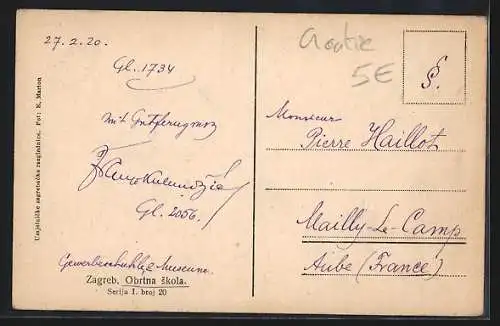 27.2.20.
Gl. 1734
mit
Gl. 2056.
Gewerbeschule & Museum
Zagreb, Obrtna škola.
Serija I. broj 20
Umjetničke zagrebačke razglednice. Fot: R. Marton
Croatie
5€
§.
Monsieur
Pierre Haillot
Mailly-Le-Camp
Aube (France)